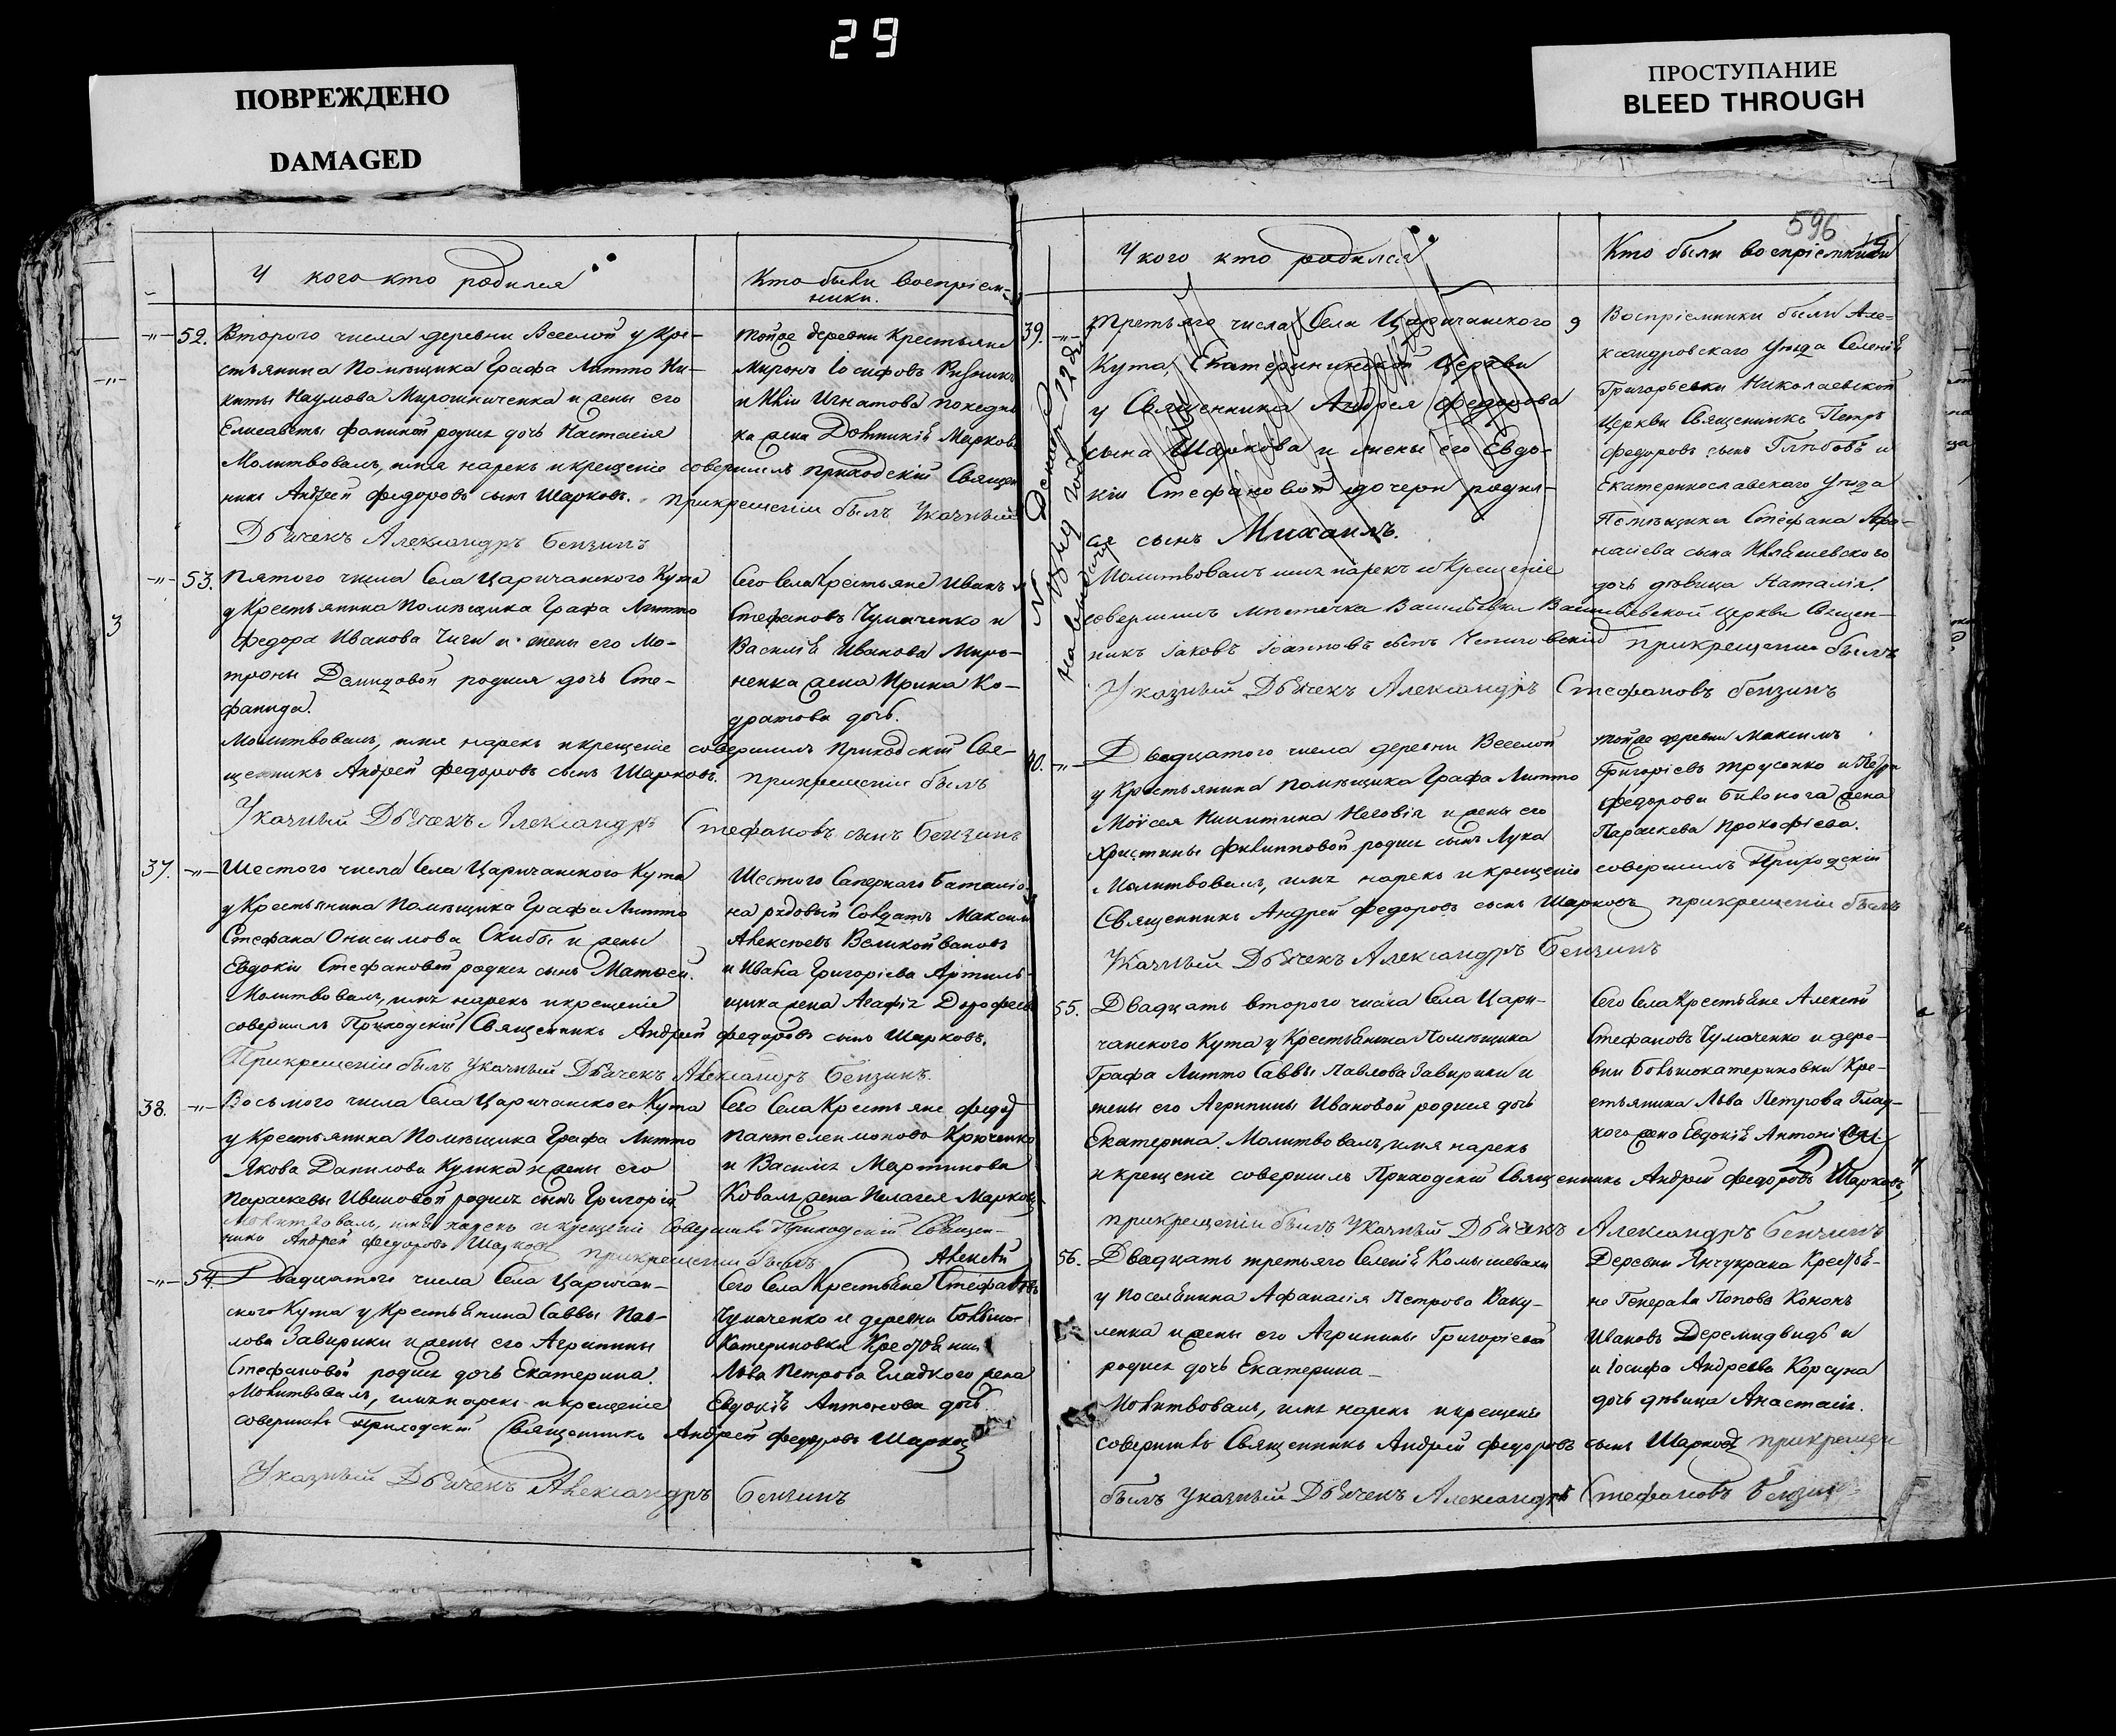 29
ПОВРЕЖДЕНО
DAMAGED
ПРОСТУПАНИЕ
BLEED THROUGH
У кого кто родился
Кто были воспріем-
ники.
-"- 52. Второго числа деревни Веселой у Кре-
стьянина Помѣщика Графа Литто Ни-
киты Наумова Мирошниченка и жены его
Елисаветы Фоминой родися дочь Настасія
Молитвовалъ, имя нарекъ и крещеніе совершилъ приходскій Священ
никъ Андрей Федоровъ сынъ Шарковъ. при крещеніи былъ Указный
Дьячекъ Александръ Бензинъ
тойже деревни Крестьяне
Миронъ Іосифовъ
и Игнатова
жена Маркова
-"- 53. Пятого числа Села Царичанского Кута
у Крестьянина Помѣщика Графа Литто
Федора Иванова Чиги и жены его Мо-
троны Демидовой родися дочь Сте-
фанида.
Молитвовалъ, имя нарекъ и крещеніе совершилъ Приходскій Свя-
щенникъ Андрей Федоровъ сынъ Шарковъ. при крещеніи былъ
Указный Дьячекъ Александръ Стефановъ сынъ Бензинъ
Сего Села Крестьяне Иванъ
Стефановъ Чумаченко и
Василія Иванова Миро-
ненка жена Ирина Ко-
дратова дочь.
3
37. -"- Шестого числа Села Царичанского Кута
у Крестьянина Помѣщика Графа Литто
Стефана Онисимова Скибы и жены
Евдокіи Стефановой родися сынъ Матѳей.
Молитвовалъ, имя нарекъ и крещеніе
совершилъ Приходскій Священникъ Андрей Федоровъ сынъ Шарковъ.
При крещеніи былъ Указный Дьячекъ Александръ Бензинъ.
Шестого Саперного Баталіо-
на рядовый Солдатъ Максимъ
Алексѣевъ
и Ивана Григоріева Артиль-
щика жена Агафія Дорофеева
38. -"- Восьмого числа Села Царичанского Кута
у Крестьянина Помѣщика Графа Литто
Якова Данилова Кулика и жены его
Параскевы Ивановой родися сынъ Григорій
Молитвовалъ, имя нарекъ и крещеніе совершилъ Приходскій Священ-
никъ Андрей Федоровъ Шарковъ при крещеніи былъ
Сего Села Крестьяне Федоръ
Пантелеимоновъ Крюченко
и Василія Мартинова
Коваля жена Пелагея Маркова
-"- 54. Двадцатого числа Села Царичан-
ского Кута у Крестьянина Саввы Пав-
лова Завирюки и жены его Агрипины
Стефановой родися дочь Екатерина.
Молитвовалъ, имя нарекъ и крещеніе
совершилъ Приходскій Священникъ Андрей Федоровъ Шарковъ
Указный Дьячекъ Александръ Бензинъ
Алексѣй
Сего Села Крестьяне Стефановъ
Чумаченко и деревни Большо-
Катериновки Крестьянина
Льва Петрова Гладкого жена
Евдокія Антонова дочь.
596
У кого кто родился
Кто были воспріемники
39. -"- Третьяго числа Села Царичанского
Кута, Екатерининской Церкви
у Священника Андрея Федорова
сына Шаркова и жены его Евдо-
кіи Стефановой дочери родил-
ся сынъ Михаилъ.
Молитвовалъ имя нарекъ и Крещеніе
совершилъ мѣстечка Васильевки Васильевской Церкви Священ-
никъ Іаковъ Іоанновъ сынъ при крещеніи былъ
Указный Дьячекъ Александръ Стефановъ Бензинъ
9
Воспріемники были Але-
ксандровского Уѣзда Селенія
Григорьевки Николаевской
Церкви Священникъ Петръ
Федоровъ сынъ Глѣбовъ и
Екатеринославского Уѣзда
Помѣщика Стефана Афа-
насіева сына
дочь дѣвица Наталія.
40. -"- Двадцатого числа деревни Веселой
у Крестьянина Помѣщика Графа Литто
Моисея Никитина и жены его
Христины Филипповой родися сынъ Лука
Молитвовалъ, имя нарекъ и крещеніе совершилъ Приходскій
Священникъ Андрей Федоровъ сынъ Шарковъ при крещеніи былъ
Указный Дьячекъ Александръ Бензинъ
тойже деревни Максимъ
Григоріевъ Трусенко и Петра
Федорова Билонога жена
Параскева Прокофіева.
55. Двадцать второго числа Села Цари-
чанского Кута у Крестьянина Помѣщика
Графа Литто Саввы Павлова Завирюки и
жены его Агрипины Ивановой родися дочь
Екатерина. Молитвовалъ, имя нарекъ
и крещеніе совершилъ Приходскій Священникъ Андрей Федоровъ Шарковъ,
при крещеніи былъ Указный Дьячекъ Александръ Бензинъ
Сего Села Крестьяне Алексѣй
Стефановъ Чумаченко и дере-
вни Большокатериновки Кре-
стьянина Льва Петрова Глад-
кого жена Евдокія Антонова
56. Двадцать третьяго Селенія Комышевахи
у Поселянина Афанасія Петрова Ваку-
ленка и жены его Агрипины Григоріевой
родися дочь Екатерина
Молитвовалъ, имя нарекъ и крещеніе
совершилъ Священникъ Андрей Федоровъ сынъ Шарковъ при крещеніи
былъ Указный Дьячекъ Александръ Стефановъ Бензинъ
Деревни Янчукрака Крестья-
не Генерала Попова Кононъ
Ивановъ и
и Іосифа Андреева Корсуна
дочь дѣвица Анастасія.